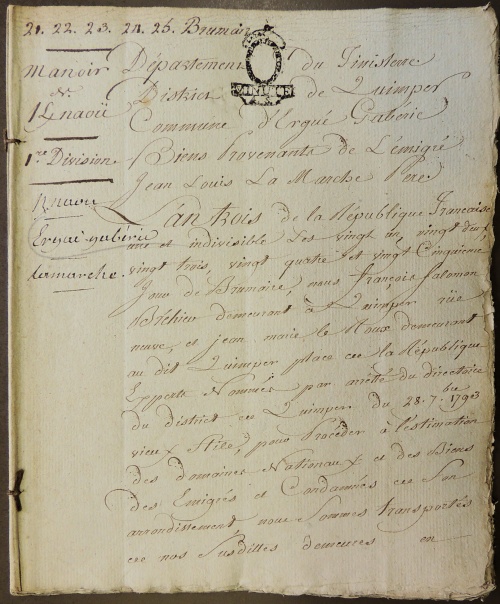 21. 22. 23. 24. 25. Brumaire
Manoir
de
Knaoü
1re Division
Knaou
Ergué gabéric
Lamarche.
MINUTE
Département du Finistere
District de Quimper
Commune d'Ergué Gaberic
Biens Provenants de L'émigré
Jean Louis La Marche Pere
L'an trois de la République Francaise
une et indivisible Les vingt un, vingt deux,
vingt trois, vingt quatre et vingt Cinquieme
Jour de Brumaire, nous François Salomon
Bréhier demeurant à Quimper rüe
neuve, et jean marie le Roux demeurant
au dit Quimper place de la République
Experts Nommés par arretté du directoire
du district de Quimper du 28. 7.bre 1793
vieux Stile, pour Procéder à l'estimation
des domaines Nationaux et des Biens
des Emigrés et Condamnés de Son
arrondissement, nous Sommes transportés
de nos Susdittes demeures en